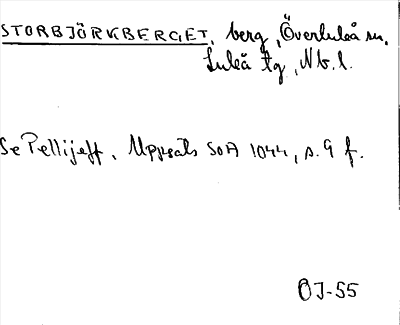 STORBJÖRKBERGET, berg, Överluleå sn,
Luleå tg, Nb. l.
Se Pellijeff, Uppsats SOA 1044, s. 9 f.
OJ-55